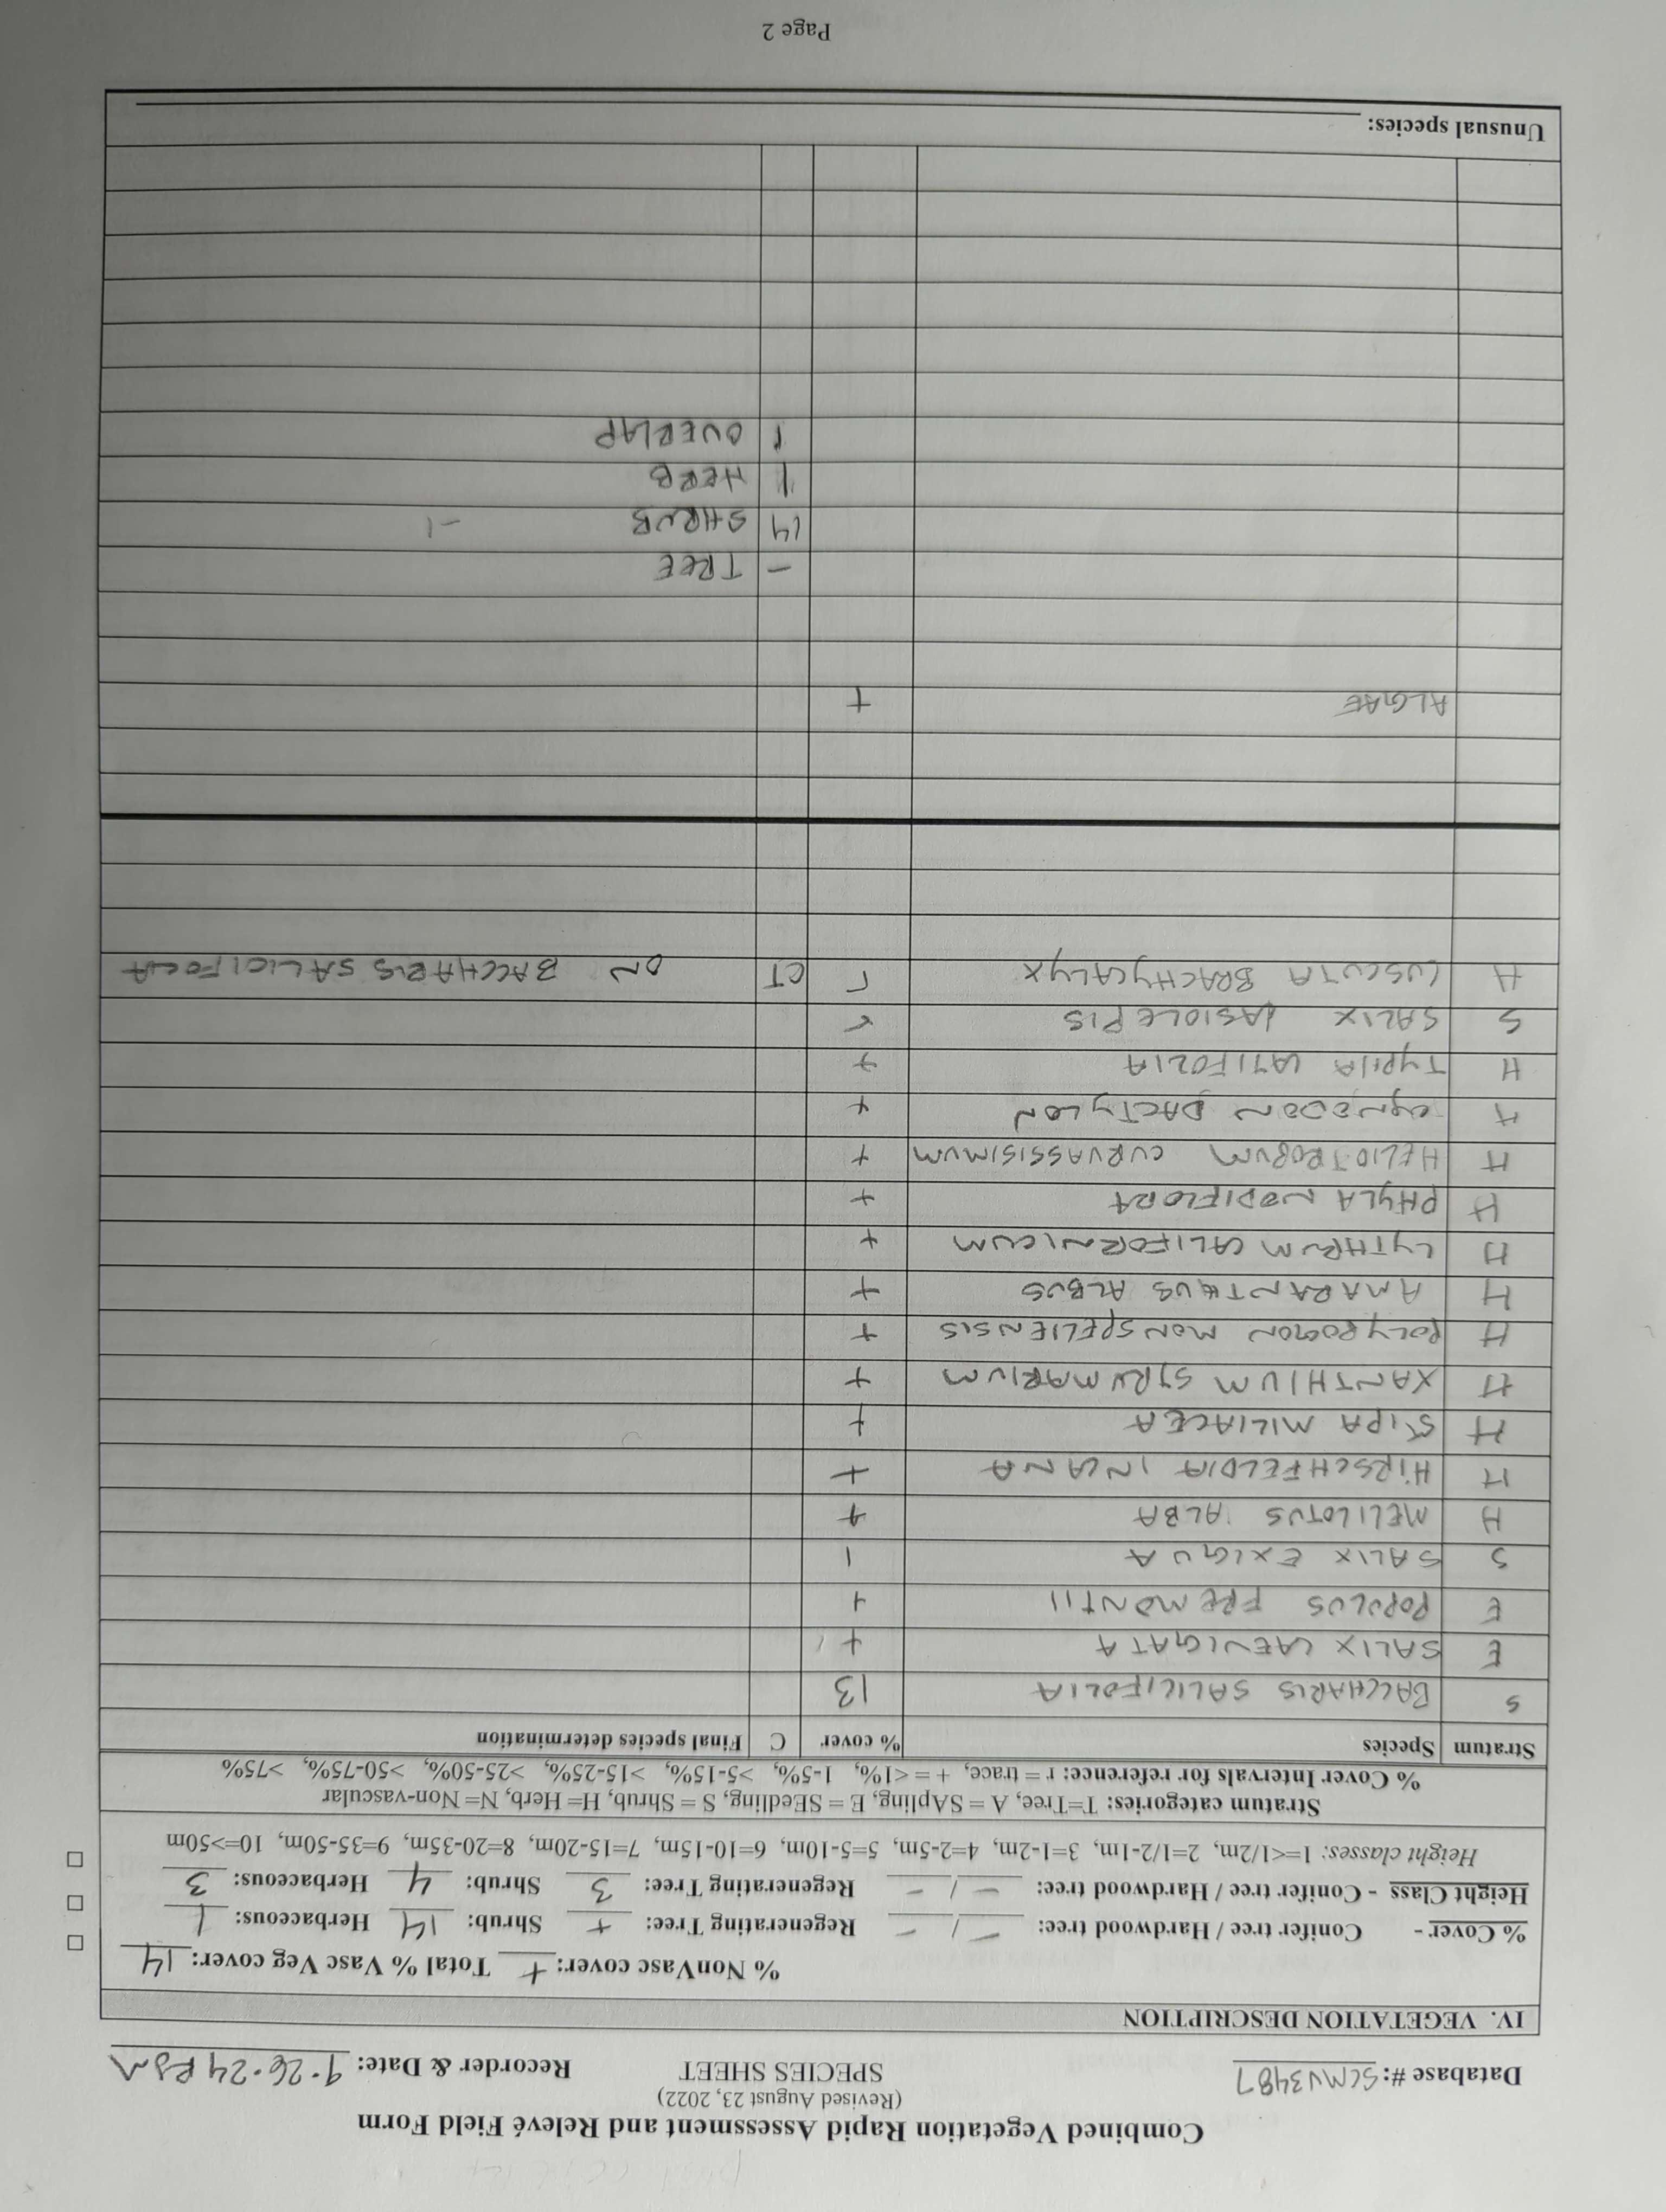 Combined Vegetation Rapid Assessment and Relevé Field Form
(Revised August 23, 2022)
Database #: SCMV3487 SPECIES SHEET Recorder & Date: 9.26.24 RSM
IV. VEGETATION DESCRIPTION
% NonVasc cover: + Total % Vasc Veg cover: 14
% Cover - Conifer tree / Hardwood tree: - / - Regenerating Tree: + Shrub: 14 Herbaceous: 1
Height Class - Conifer tree / Hardwood tree: - / - Regenerating Tree: 3 Shrub: 4 Herbaceous: 3
Height classes: 1=<1/2m, 2=1/2-1m, 3=1-2m, 4=2-5m, 5=5-10m, 6=10-15m, 7=15-20m, 8=20-35m, 9=35-50m, 10=>50m
Stratum categories: T=Tree, A = SApling, E = SEedling, S = Shrub, H= Herb, N= Non-vascular
% Cover Intervals for reference: r = trace, + = <1%, 1-5%, >5-15%, >15-25%, >25-50%, >50-75%, >75%
Stratum Species % cover C Final species determination
S BACCHARIS SALICIFOLIA 13
E SALIX LAEVIGATA +
E POPULUS FREMONTII +
S SALIX EXIGUA 1
H MELILOTUS ALBA +
H HIRSCHFELDIA INCANA +
H STIPA MILIACEA +
H XANTHIUM STRUMARIUM +
H POLYPOGON MONSPELIENSIS +
H AMARANTHUS ALBUS +
H LYTHRUM CALIFORNICUM +
H PHYLA NODIFLORA +
H HELIOTROPUM CURVASSISIMUM +
H CYNODON DACTYLON +
H TYPHA LATIFOLIA +
S SALIX LASIOLEPIS r
H CUSCUTA BRACHYCALYX r CT ON BACCHARIS SALICIFOLIA
ALGAE +
- TREE
14 SHRUB -1
1 HERB
1 OVERLAP
Unusual species:
Page 2